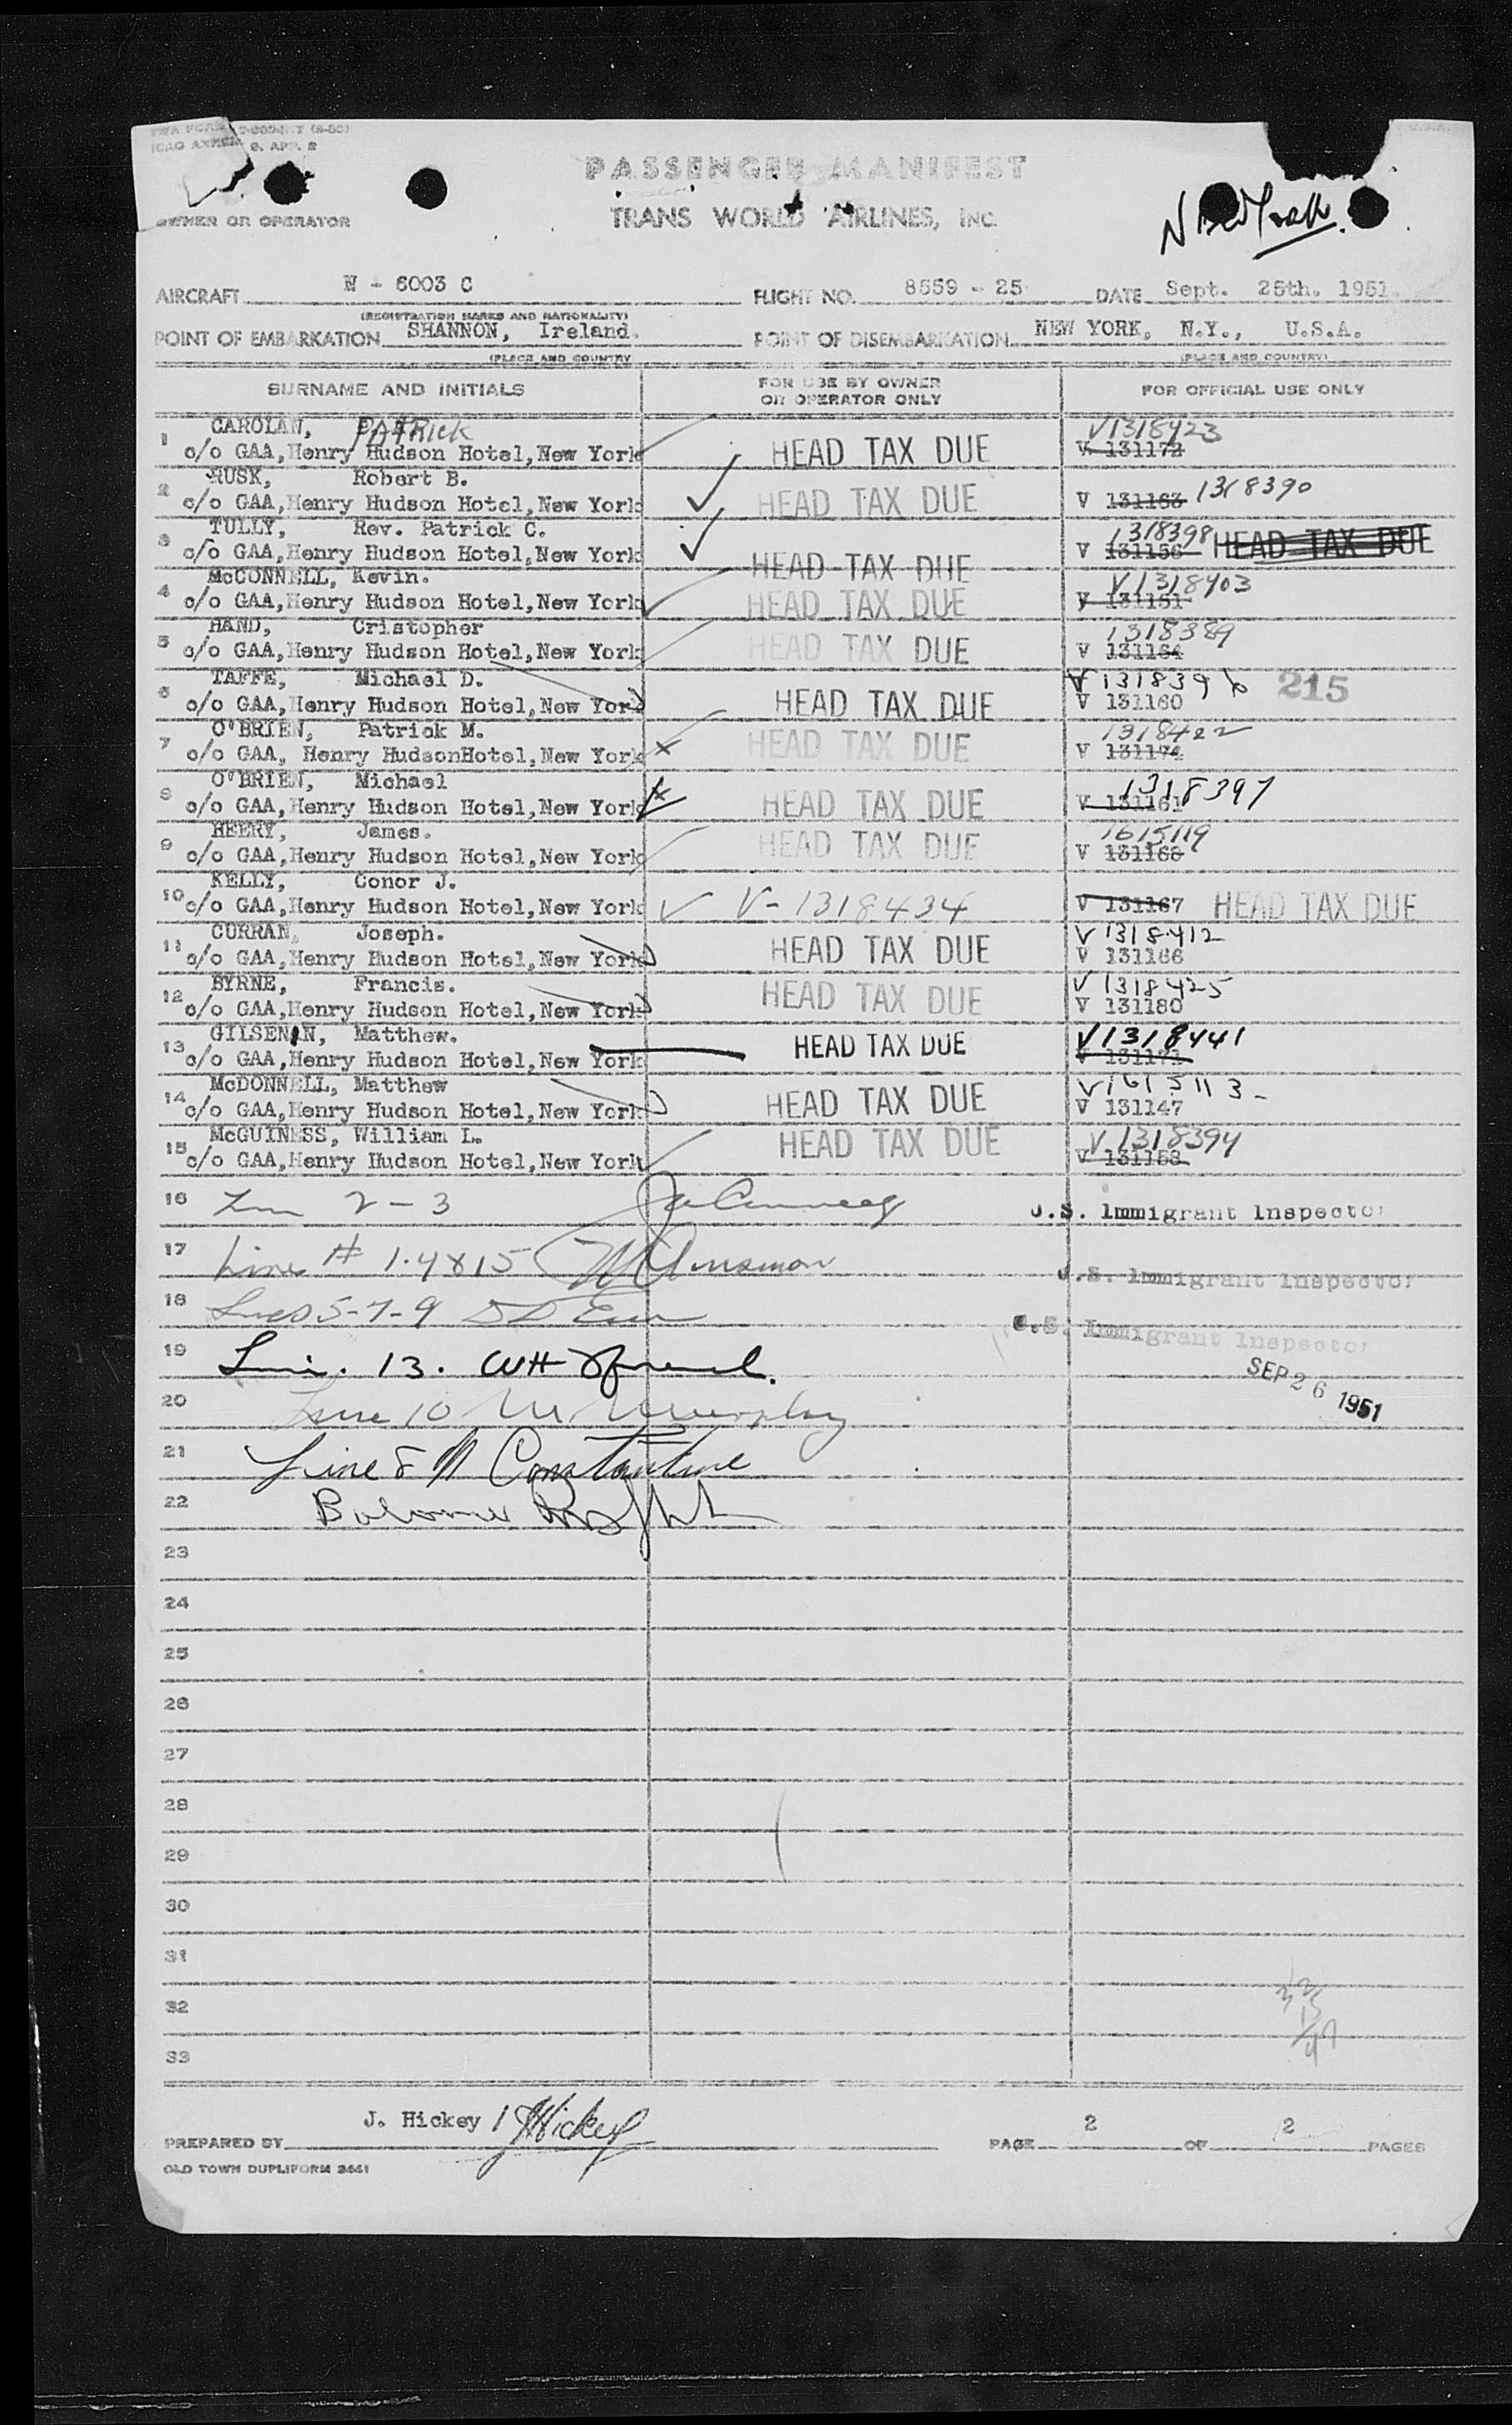 ICAO ANNEX 9, APP. 2
OWNER OR OPERATOR
PASSENGER MANIFEST
TRANS WORLD AIRLINES, INC.
AIRCRAFT N - 6003 C FLIGHT NO. 8559 - 25 DATE Sept. 25th. 1951.
(REGISTRATION MARKS AND NATIONALITY)
POINT OF EMBARKATION SHANNON, Ireland. POINT OF DISEMBARKATION NEW YORK, N.Y., U.S.A.
(PLACE AND COUNTRY (PLACE AND COUNTRY)
SURNAME AND INITIALS FOR USE BY OWNER OR OPERATOR ONLY FOR OFFICIAL USE ONLY
CAROLAN, PATRICK V1318423
1 c/o GAA,Henry Hudson Hotel,New York HEAD TAX DUE V 131172
RUSK, Robert B.
2 c/o GAA,Henry Hudson Hotel,New York HEAD TAX DUE V 131163 1318390
TULLY, Rev. Patrick C. 1318398
3 c/o GAA,Henry Hudson Hotel,New York HEAD TAX DUE V 131156 HEAD TAX DUE
McCONNELL, Kevin. V1318403
4 c/o GAA,Henry Hudson Hotel,New York HEAD TAX DUE V 131151
HAND, Cristopher 1318389
5 c/o GAA,Henry Hudson Hotel,New York HEAD TAX DUE V 131164
TAFFE, Michael D. V 1318396 215
6 c/o GAA,Henry Hudson Hotel,New York HEAD TAX DUE V 131160
O'BRIEN, Patrick M. 1318422
7 c/o GAA, Henry HudsonHotel,New York HEAD TAX DUE V 131174
O'BRIEN, Michael 1318397
8 c/o GAA,Henry Hudson Hotel,New York HEAD TAX DUE V 131161
HEERY, James. 1615119
9 c/o GAA,Henry Hudson Hotel,New York HEAD TAX DUE V 131168
KELLY, Conor J.
10 c/o GAA,Henry Hudson Hotel,New York V-1318434 V 131167 HEAD TAX DUE
CURRAN, Joseph. V 1318412
11 c/o GAA,Henry Hudson Hotel,New York HEAD TAX DUE V 131166
BYRNE, Francis. V 1318425
12 c/o GAA,Henry Hudson Hotel,New York HEAD TAX DUE V 131180
GILSENIN, Matthew. V1318441
13 c/o GAA,Henry Hudson Hotel,New York HEAD TAX DUE V 131171
McDONNELL, Matthew V1615113
14 c/o GAA,Henry Hudson Hotel,New York HEAD TAX DUE V 131147
McGUINESS, William L. V 1318394
15 c/o GAA,Henry Hudson Hotel,New York HEAD TAX DUE V 131158
16 2-3 U.S. Immigrant Inspector
17 Line # 1.4&15 U.S. Immigrant Inspector
18 Lines 5-7-9 U.S. Immigrant Inspector
19 Line. 13. SEP 26 1951
20 Line 10 Murphy
21 Line 8 Constantine
22
23
24
25
26
27
28
29
30
31
32
33
J. Hickey / JHickey
PREPARED BY PAGE 2 OF 2 PAGES
OLD TOWN DUPLIFORM 3441